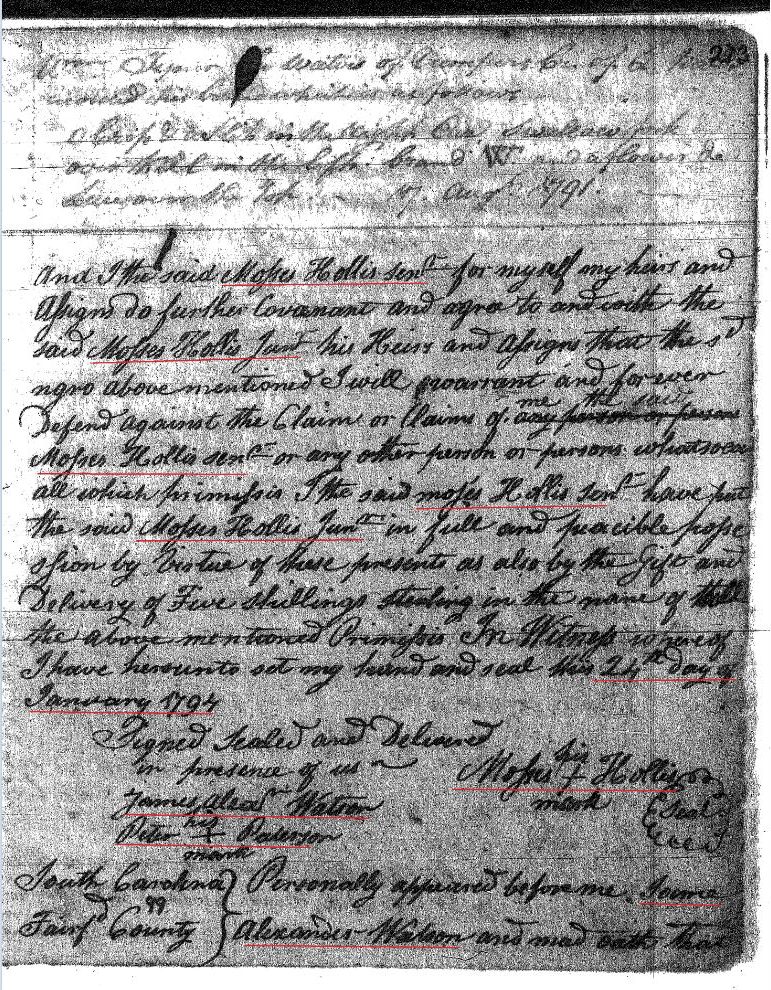 223
waters of
as follows
in the
and a flower de
17 Augt. 1791.
And I the said Mosses Hollis senr. for myself my heirs and
Assigns do further Covenant and agree to and with the
said Mosses Hollis Junr his Heirs and Assigns that the sd
ngro above mentioned I will warrant and forever
me the said
Defend against the Claim or Claims of any person or persons
Mosses Hollis senr or any other person or persons whatsoeve
all which primissis I the said moses Hollis senr have put
the said Mosses Hollis Junr in full and peacible posse
ssion by Virtue of these presents as also by the Gift and
Delivery of Five shillings sterling in the mane of
the above mentioned Primissis In Witness whereof
I have hereunto set my hand and seal this 24th day of
January 1794
Signed Sealed and Delivered
in presence of us
Mosses his + Hollis
mark
Seal
James Alexr Watson
Peter his + Paterson
mark
South Carolina } Personally appeared before me Jame
Fairfd County } Alexander Watson and mad oath that